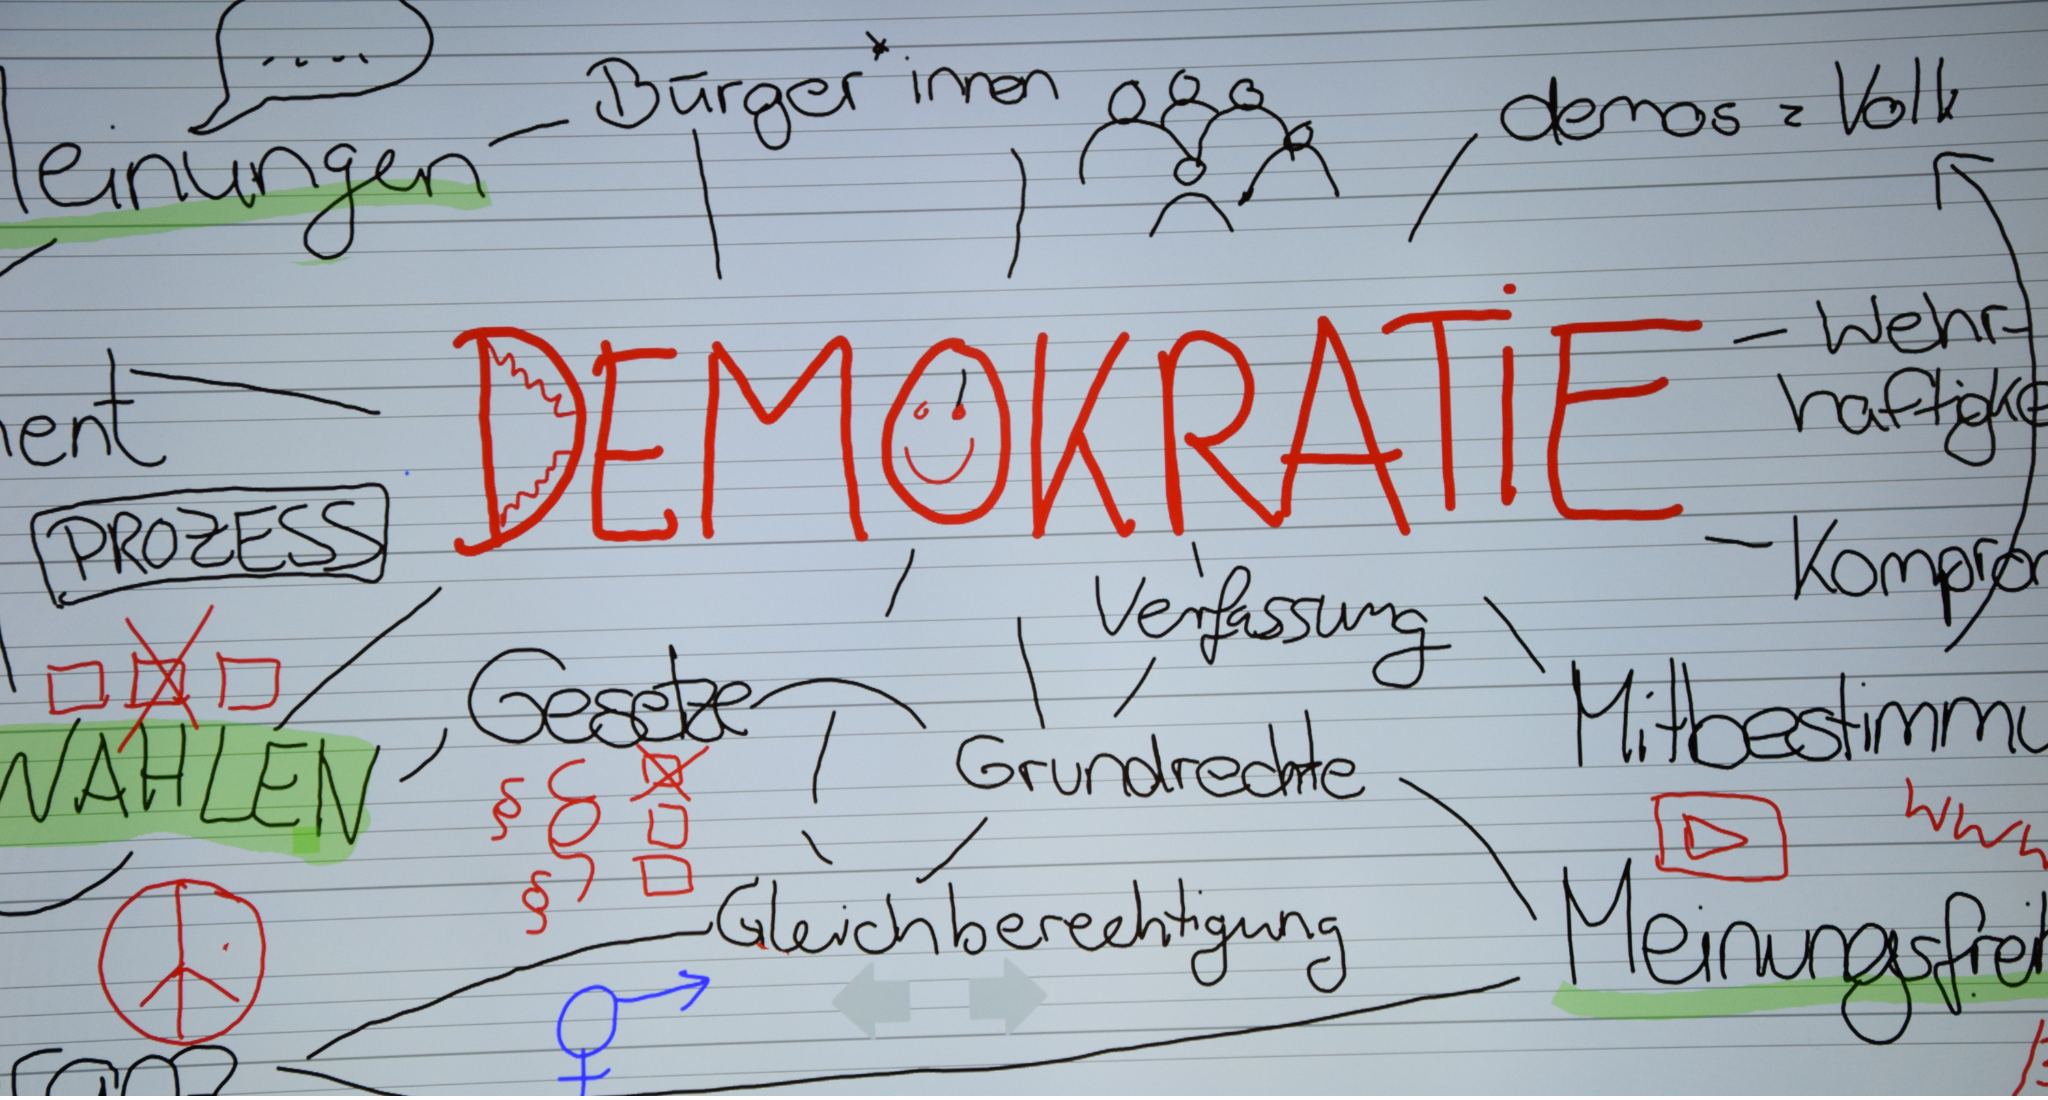 ....
Meinungen
Bürger*innen
demos = Volk
DEMOKRATiE
Wehr-
haftigke
ent
PROZESS
Kompro
Verfassung
Gesetze
Mitbestimmu
WAHLEN
Grundrechte
§
§
§
www
Gleichberechtigung
Meinungsfrei